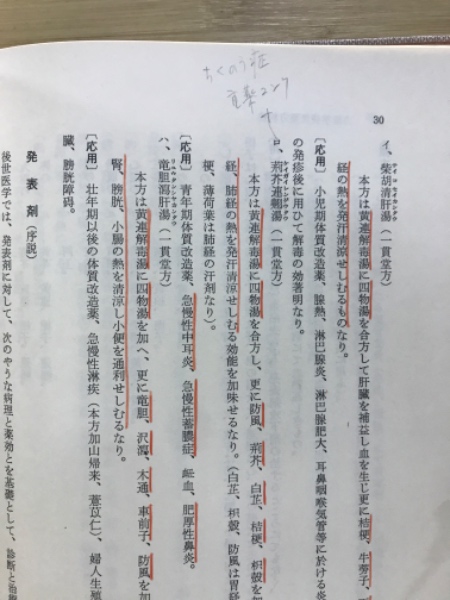 ちくのう症
30
イ、柴胡清肝湯（一貫堂方）
サイコセイカントウ
本方は黄連解毒湯に四物湯を合方して肝臓を補益し血を生じ更に桔梗、牛蒡子、
経の熱を発汗清涼せしむるものなり。
〔応用〕 小児期体質改造薬、腺熱、淋巴腺炎、淋巴腺肥大、耳鼻咽喉気管等に於ける炎
の発疹後に用ひて解毒の効著明なり。
ロ、荊芥連翹湯（一貫堂方）
ケイガイレンギョウトウ
本方は黄連解毒湯に四物湯を合方し、更に防風、荊芥、白芷、桔梗、枳殻を加
経、肺経の熱を発汗清涼せしむる効能を加味せるなり。（白芷、枳殻、防風は胃経
梗、薄荷葉は肺経の汗剤なり）。
〔応用〕 青年期体質改造薬、急慢性中耳炎、急慢性蓄膿症、衂血、肥厚性鼻炎。
ハ、竜胆瀉肝湯（一貫堂方）
リュウタンシャカントウ
本方は黄連解毒湯に四物湯を加へ、更に竜胆、沢瀉、木通、車前子、防風を加
腎、膀胱、小腸の熱を清涼し小便を通利せしむるなり。
〔応用〕 壮年期以後の体質改造薬、急慢性淋疾（本方加山帰来、薏苡仁）、婦人生殖
臓、膀胱障碍。
発表剤（序説）
後世医学では、発表剤に対して、次のやうな病理と薬効とを基礎として、診断と治